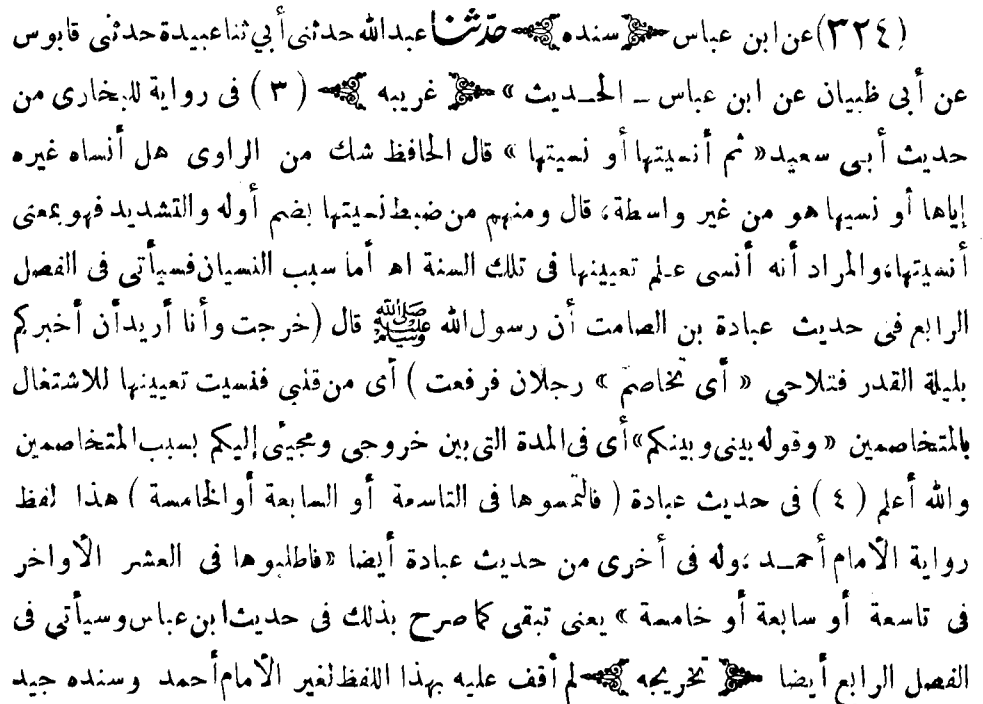 (٣٢٤) عن ابن عباس ﴿ سنده ﴾ حدّثنا عبد الله حدثنى أبي ثنا عبيدة حدثنى قابوس
عن أبى ظبيان عن ابن عباس ــ الحــديث » ﴿ غريبه ﴾ ( ٣ ) فى رواية للبخارى من
حديث أبى سعيد « ثم أنسيتها أو نسيتها » قال الحافظ شك من الراوى هل أنساه غيره
إياها أو نسيها هو من غير واسطة، قال ومنهم من ضبط نسيتها بضم أوله والتشديد فهو بمعنى
أنسيتها، والمراد أنه أنسى علم تعيينها فى تلك السنة اهـ أما سبب النسيان فسيأتى فى الفصل
الرابع فى حديث عبادة بن الصامت أن رسول الله ﷺ قال (خرجت وأنا أريد أن أخبركم
بليلة القدر فتلاحى « أى تخاصم » رجلان فرفعت ) أى من قلبي فنسيت تعيينها للاشتغال
بالمتخاصمين « وقوله بينى وبينكم» أى فى المدة التى بين خروجى ومجيئى إليكم بسبب المتخاصمين
والله أعلم ( ٤ ) فى حديث عبادة ( فالتمسوها فى التاسعة أو السابعة أو الخامسة ) هذا لفظ
رواية الأمام أحمــد ،وله فى أخرى من حديث عبادة أيضا «فاطلبوها فى العشر الأواخر
فى تاسعة أو سابعة أو خامسة » يعنى تبقى كما صرح بذلك فى حديث ابن عباس وسيأتى فى
الفصل الرابع أيضا ﴿ تخريجه ﴾ لم أقف عليه بهذا اللفظ لغير الأمام أحمد وسنده جيد